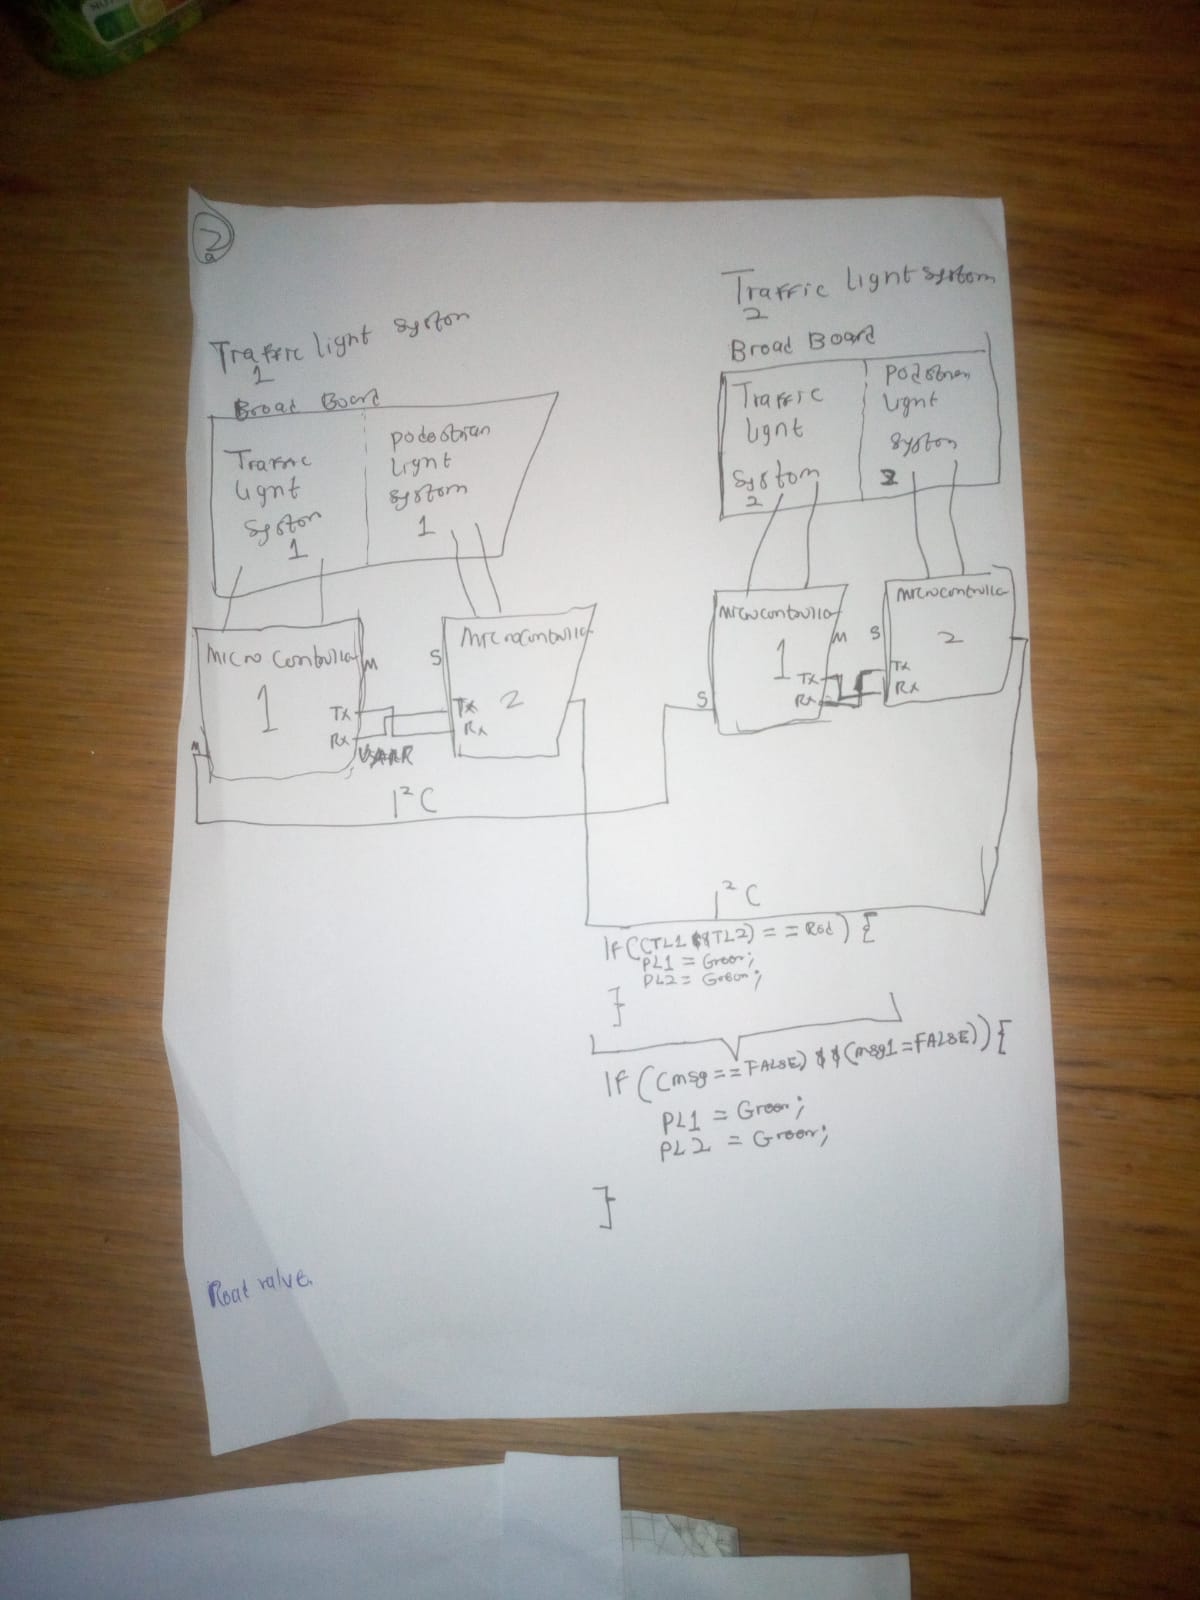 2
a
Traffic light system
1
Broad Board
Traffic
light
system
1
pedestrian
light
system
1
Micro Controller
1
M
Tx
Rx
M
S
Microcontroller
2
Tx
Rx
I²C
Traffic light system
2
Broad Board
Traffic
light
system
2
Pedestrian
light
system
2
Microcontroller
1
M
Tx
Rx
S
S
Microcontroller
2
Tx
Rx
I²C
If ((TL1 && TL2) == Red) {
PL1 = Green;
PL2 = Green;
}
If ((msg == FALSE) && (msg1 = FALSE)) {
PL1 = Green;
PL2 = Green;
}
valve.